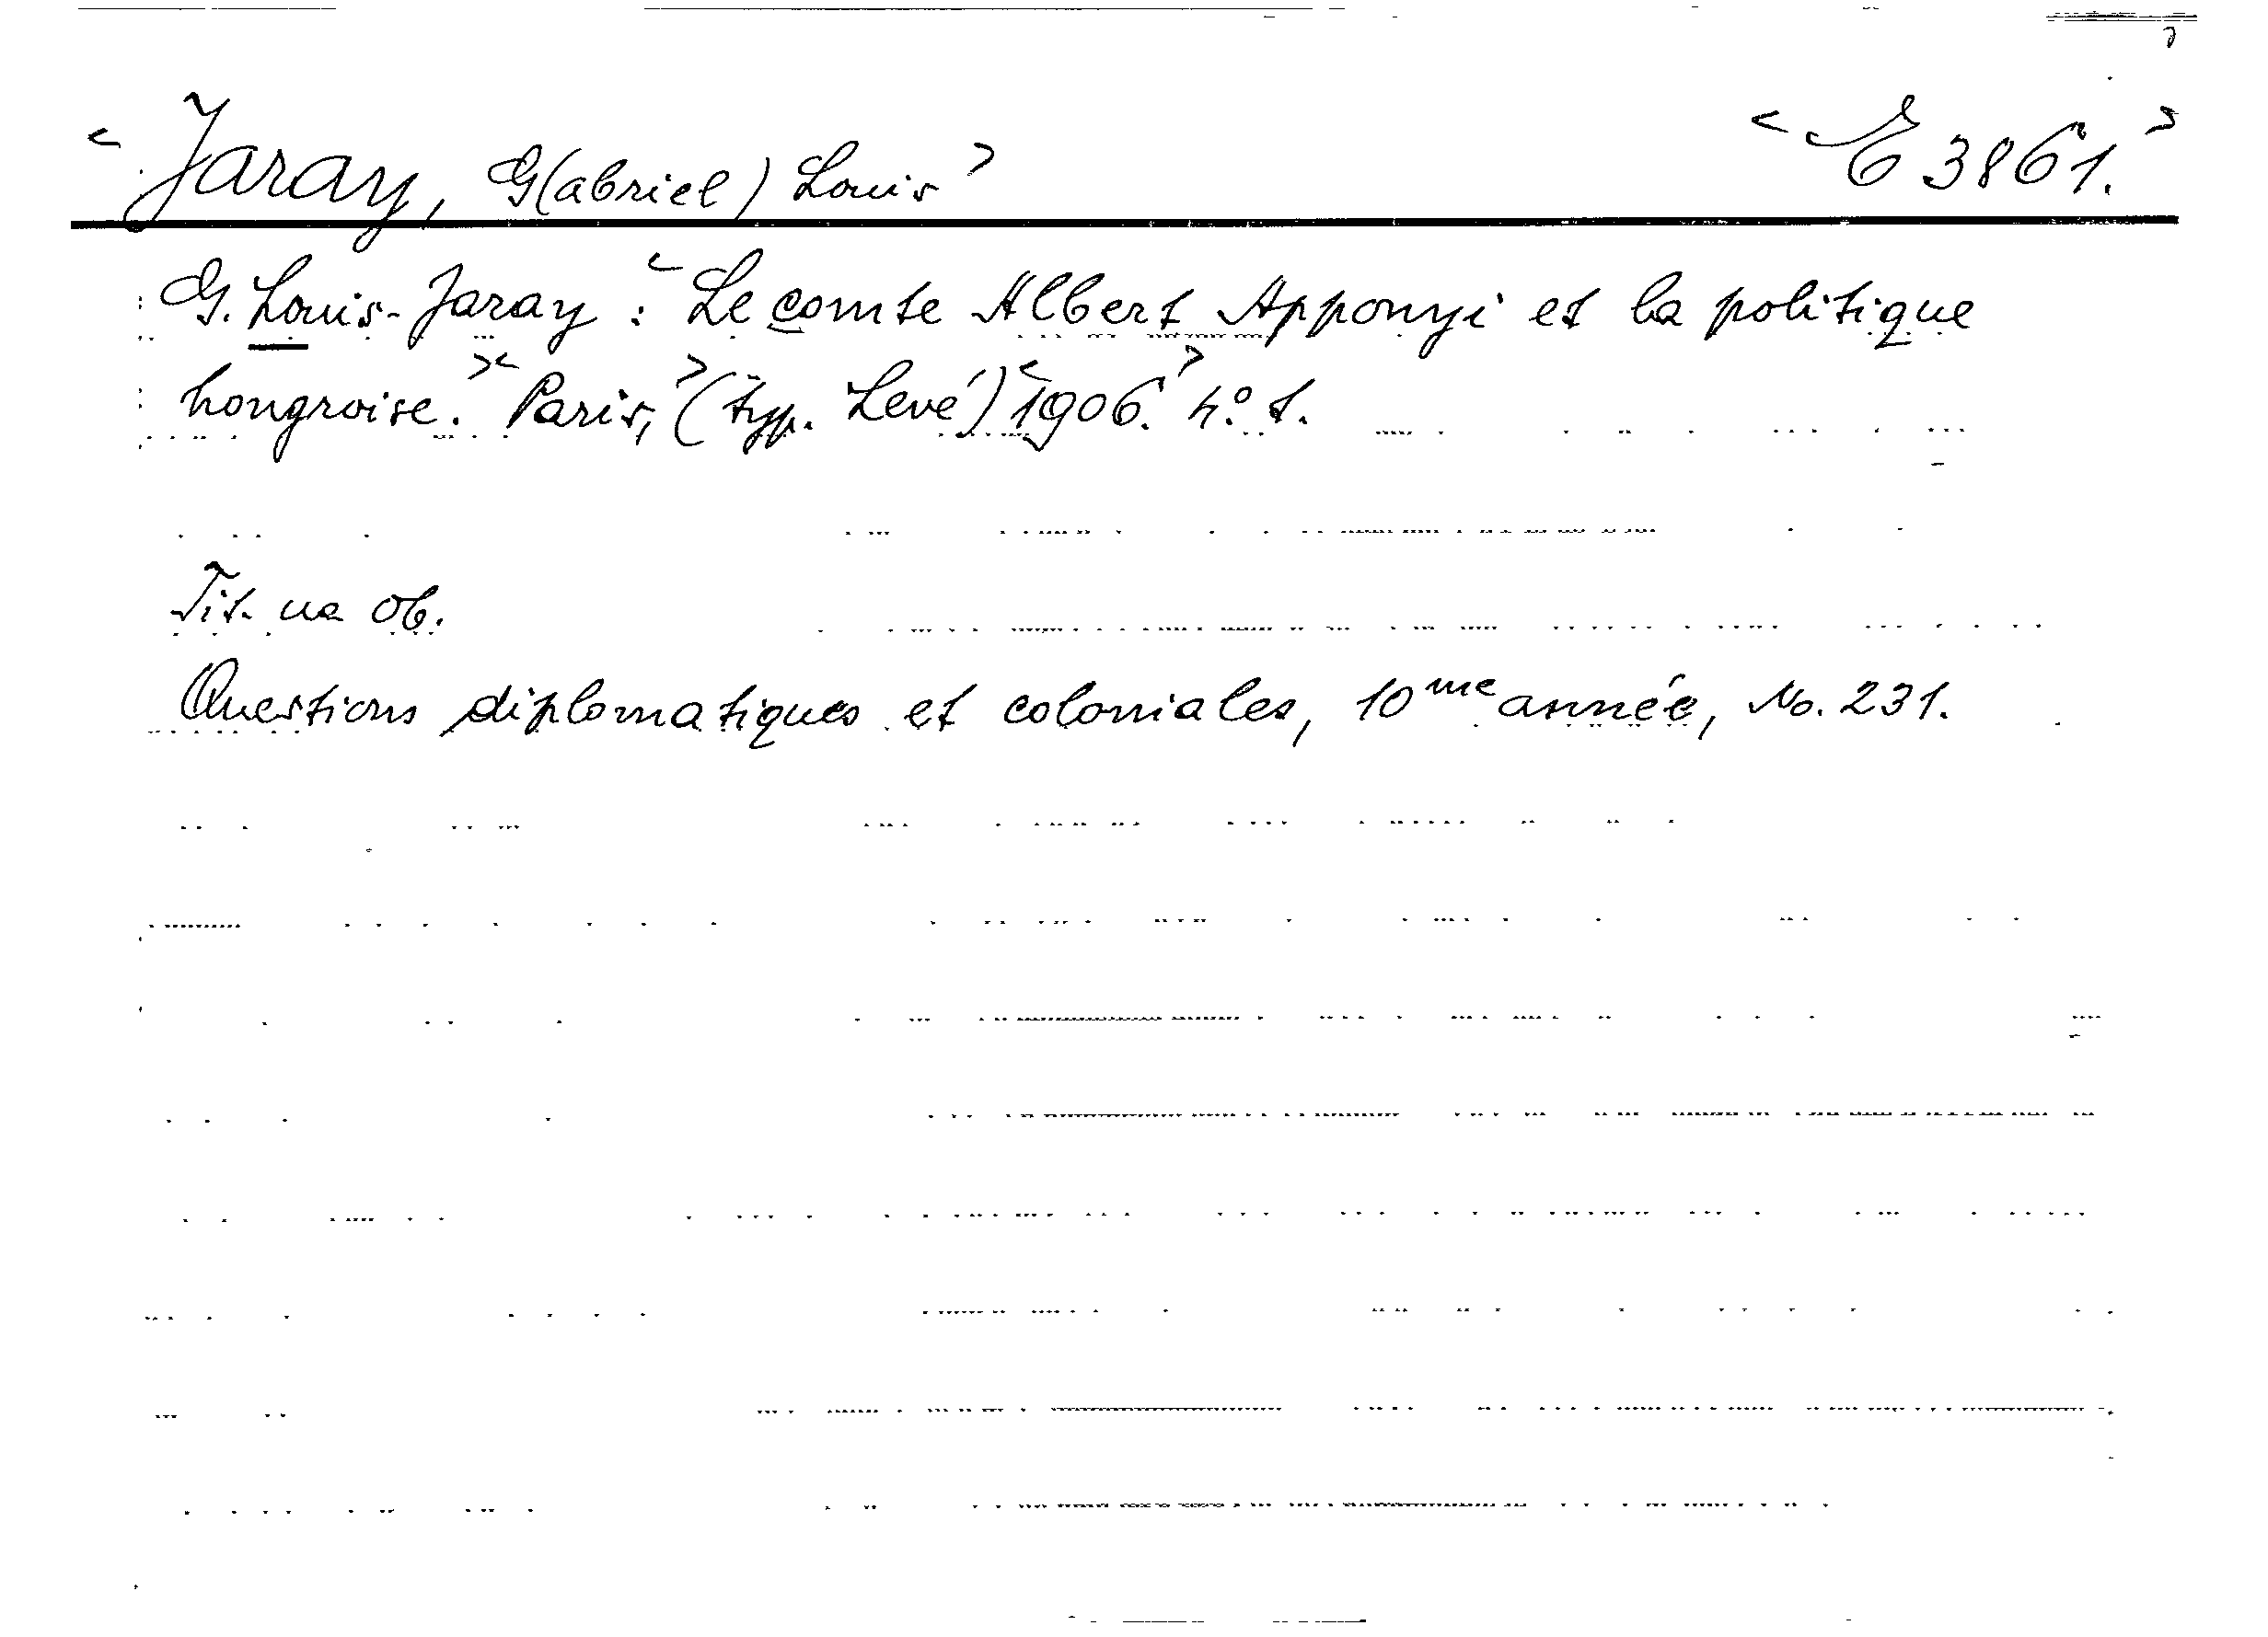 <Jaray, G(abriel) Louis> <E 3861.>
G. Louis-Jaray: <Le comte Albert Apponyi et la politique
hongroise.><Paris,>(typ. Levé)<1906.> 4°. t.
Tit. na ob.
Questions diplomatiques et coloniales, 10me année, No. 231.